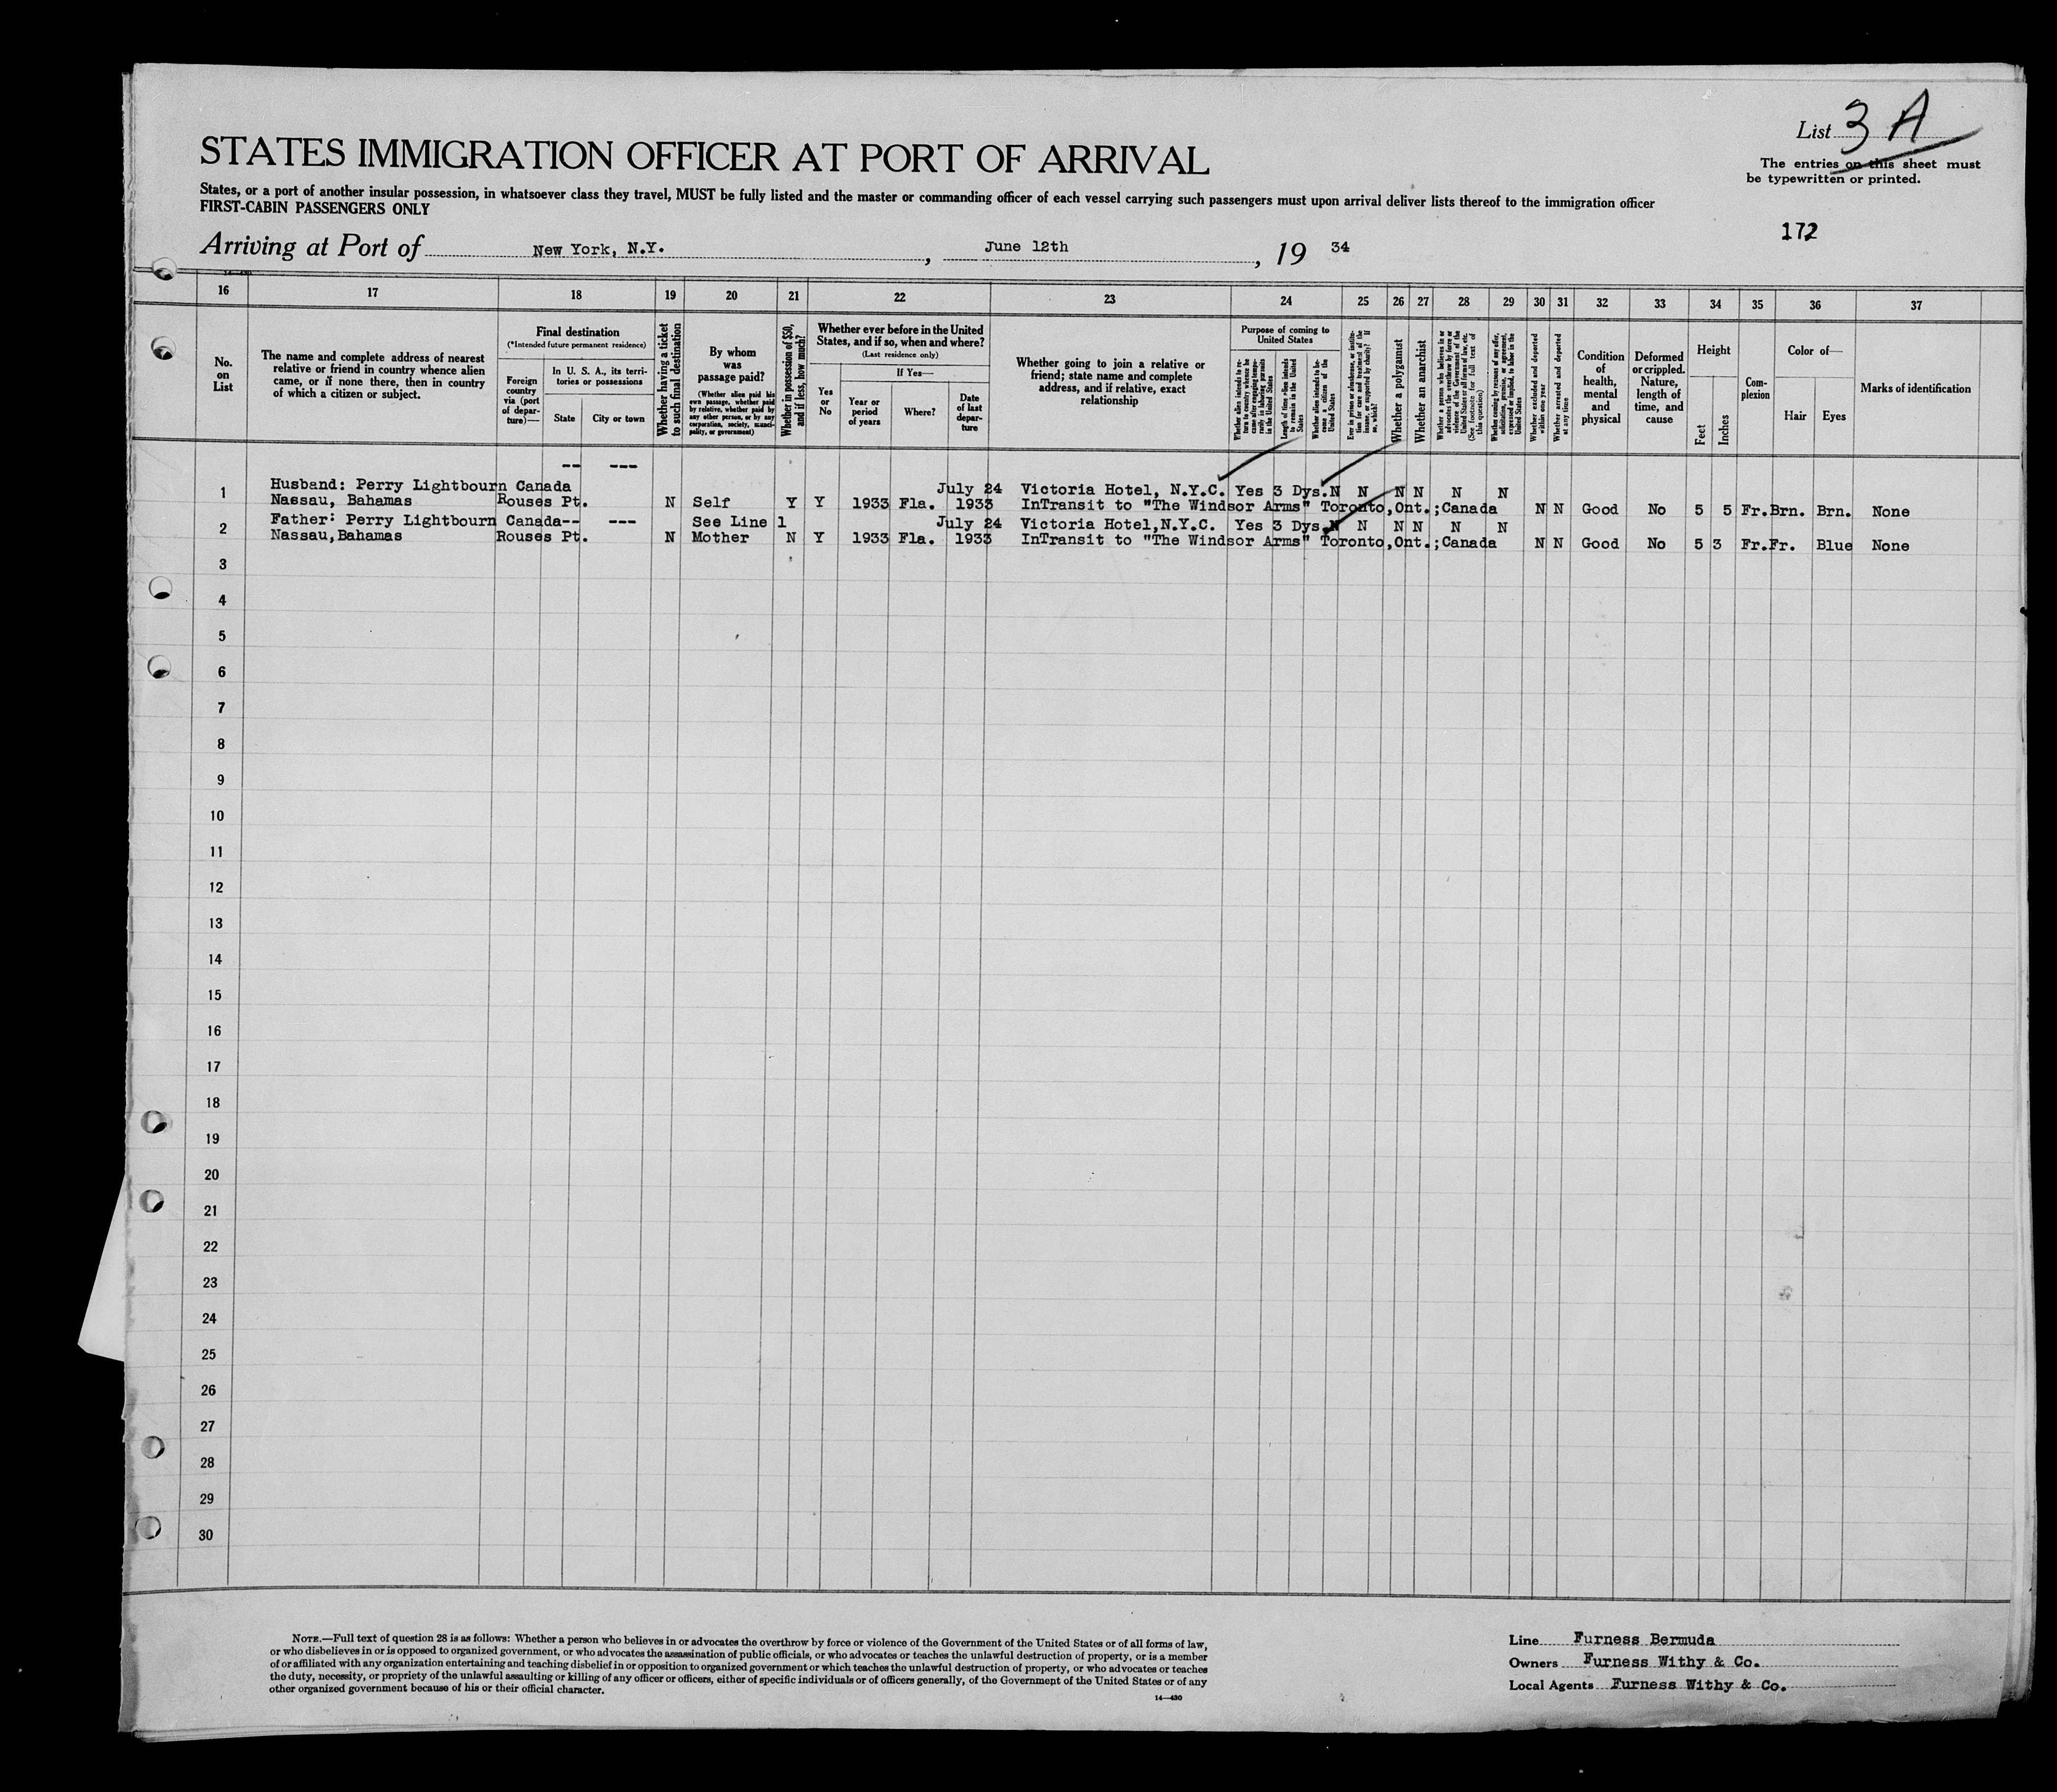 List 3 A
STATES IMMIGRATION OFFICER AT PORT OF ARRIVAL
The entries on this sheet must
be typewritten or printed.
States, or a port of another insular possession, in whatsoever class they travel, MUST be fully listed and the master or commanding officer of each vessel carrying such passengers must upon arrival deliver lists thereof to the immigration officer
FIRST-CABIN PASSENGERS ONLY
172
Arriving at Port of New York, N.Y. , June 12th , 19 34
16 17 18 19 20 21 22 23 24 25 26 27 28 29 30 31 32 33 34 35 36 37
No.
on
List
The name and complete address of nearest
relative or friend in country whence alien
came, or if none there, then in country
of which a citizen or subject.
Final destination
(*Intended future permanent residence)
Foreign
country
via (port
of depar-
ture)—
In U. S. A., its terri-
tories or possessions
State
City or town
Whether having a ticket
to such final destination
By whom
was
passage paid?
(Whether alien paid his
own passage, whether paid
by relative, whether paid by
any other person, or by any
corporation, society, munici-
pality, or government)
Whether in possession of $50,
and if less, how much?
Whether ever before in the United
States, and if so, when and where?
(Last residence only)
Yes
or
No
If Yes—
Year or
period
of years
Where?
Date
of last
depar-
ture
Whether going to join a relative or
friend; state name and complete
address, and if relative, exact
relationship
Purpose of coming to
United States
Whether alien intends to re-
turn to country whence he
came after engaging tempo-
rarily in laboring pursuits
in the United States
Length of time alien intends
to remain in the United
States
Whether alien intends to be-
come a citizen of the
United States
Ever in prison or almshouse, or institu-
tion for care and treatment of the
insane, or supported by charity? If
so, which?
Whether a polygamist
Whether an anarchist
Whether a person who believes in or
advocates the overthrow by force or
violence of the Government of the
United States or all forms of law, etc.
(See footnote for full text of
this question)
Whether coming by reasons of any offer,
solicitation, promise, or agreement,
expressed or implied, to labor in the
United States
Whether excluded and deported
within one year
Whether arrested and deported
at any time
Condition
of
health,
mental
and
physical
Deformed
or crippled.
Nature,
length of
time, and
cause
Height
Feet
Inches
Com-
plexion
Color of—
Hair
Eyes
Marks of identification
-- ---
Husband: Perry Lightbourn Canada July 24 Victoria Hotel, N.Y.C. Yes 3 Dys. N N N N N N
1 Nassau, Bahamas Rouses Pt. N Self Y Y 1933 Fla. 1933 InTransit to "The Windsor Arms" Toronto,Ont.;Canada N N Good No 5 5 Fr. Brn. Brn. None
Father: Perry Lightbourn Canada-- --- See Line 1 July 24 Victoria Hotel,N.Y.C. Yes 3 Dys. N N N N N N
2 Nassau,Bahamas Rouses Pt. N Mother N Y 1933 Fla. 1933 InTransit to "The Windsor Arms" Toronto,Ont.;Canada N N Good No 5 3 Fr. Fr. Blue None
3
4
5
6
7
8
9
10
11
12
13
14
15
16
17
18
19
20
21
22
23
24
25
26
27
28
29
30
NOTE.—Full text of question 28 is as follows: Whether a person who believes in or advocates the overthrow by force or violence of the Government of the United States or of all forms of law,
or who disbelieves in or is opposed to organized government, or who advocates the assassination of public officials, or who advocates or teaches the unlawful destruction of property, or is a member
of or affiliated with any organization entertaining and teaching disbelief in or opposition to organized government or which teaches the unlawful destruction of property, or who advocates or teaches
the duty, necessity, or propriety of the unlawful assaulting or killing of any officer or officers, either of specific individuals or of officers generally, of the Government of the United States or of any
other organized government because of his or their official character.
14—430
Line Furness Bermuda
Owners Furness Withy & Co.
Local Agents Furness Withy & Co.